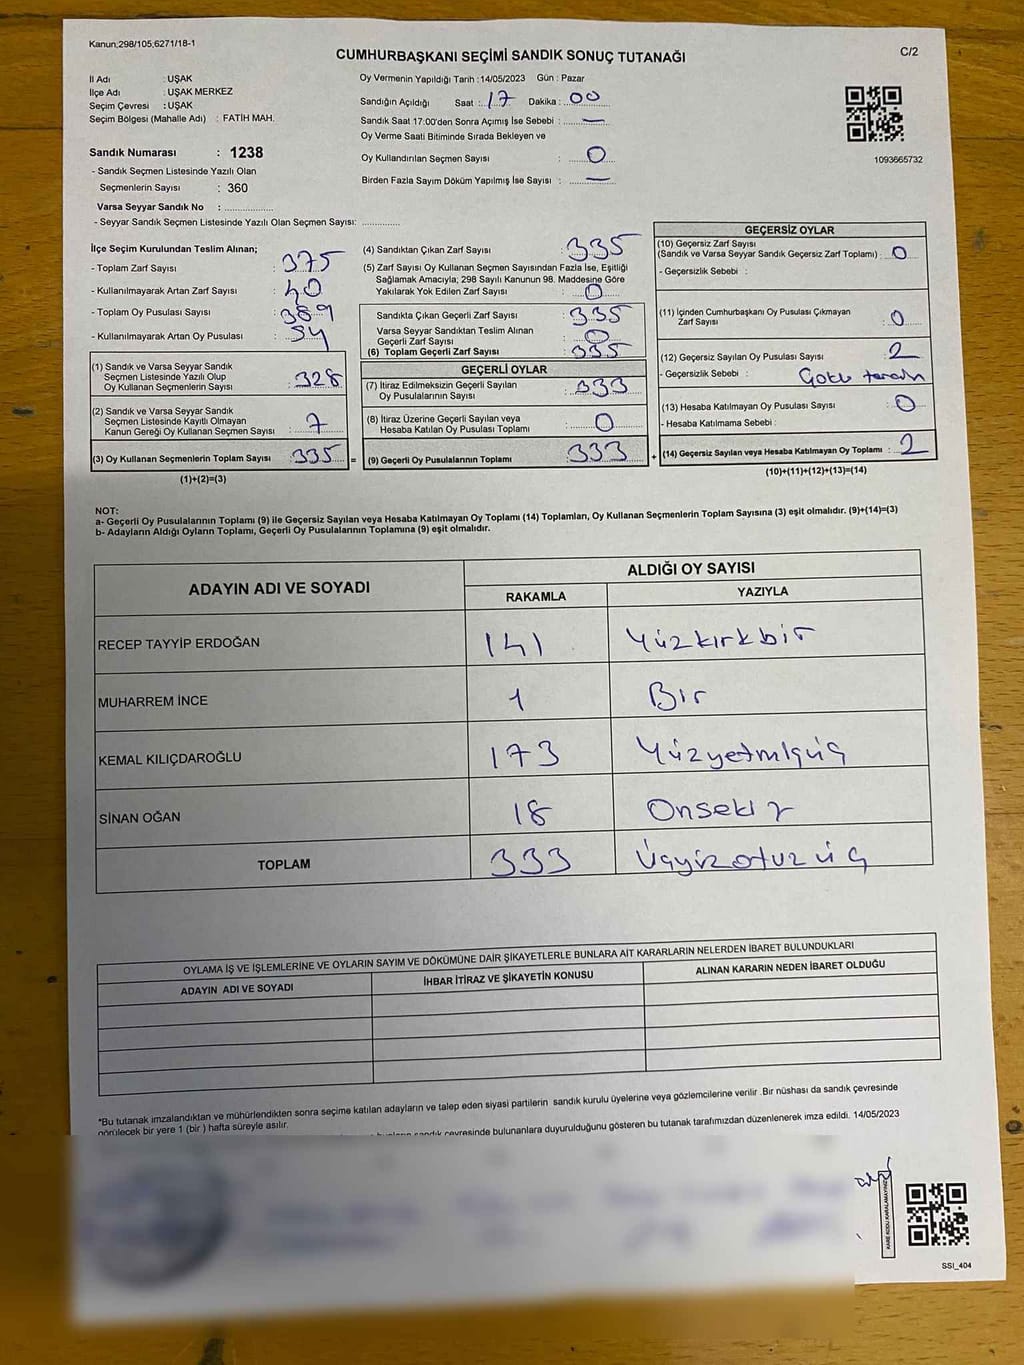 Kanun;298/105;6271/18-1
CUMHURBAŞKANI SEÇİMİ SANDIK SONUÇ TUTANAĞI
C/2
İl Adı : UŞAK
İlçe Adı : UŞAK MERKEZ
Seçim Çevresi : UŞAK
Seçim Bölgesi (Mahalle Adı) : FATİH MAH.
Oy Vermenin Yapıldığı Tarih : 14/05/2023 Gün : Pazar
Sandığın Açıldığı Saat : 17 Dakika : 00
Sandık Saat 17:00'den Sonra Açımış İse Sebebi : —
Oy Verme Saati Bitiminde Sırada Bekleyen ve
Oy Kullandırılan Seçmen Sayısı : 0
Birden Fazla Sayım Döküm Yapılmış İse Sayısı : —
1093665732
Sandık Numarası : 1238
- Sandık Seçmen Listesinde Yazılı Olan
Seçmenlerin Sayısı : 360
Varsa Seyyar Sandık No :
- Seyyar Sandık Seçmen Listesinde Yazılı Olan Seçmen Sayısı:
İlçe Seçim Kurulundan Teslim Alınan;
- Toplam Zarf Sayısı : 375
- Kullanılmayarak Artan Zarf Sayısı : 40
- Toplam Oy Pusulası Sayısı : 389
- Kullanılmayarak Artan Oy Pusulası : 54
(1) Sandık ve Varsa Seyyar Sandık
Seçmen Listesinde Yazılı Olup
Oy Kullanan Seçmenlerin Sayısı : 328
(2) Sandık ve Varsa Seyyar Sandık
Seçmen Listesinde Kayıtlı Olmayan
Kanun Gereği Oy Kullanan Seçmen Sayısı : 7
(3) Oy Kullanan Seçmenlerin Toplam Sayısı : 335 =
(1)+(2)=(3)
(4) Sandıktan Çıkan Zarf Sayısı : 335
(5) Zarf Sayısı Oy Kullanan Seçmen Sayısından Fazla İse, Eşitliği
Sağlamak Amacıyla; 298 Sayılı Kanunun 98. Maddesine Göre
Yakılarak Yok Edilen Zarf Sayısı : 0
Sandıkta Çıkan Geçerli Zarf Sayısı : 335
Varsa Seyyar Sandıktan Teslim Alınan
Geçerli Zarf Sayısı : 0
(6) Toplam Geçerli Zarf Sayısı : 335
GEÇERLİ OYLAR
(7) İtiraz Edilmeksizin Geçerli Sayılan
Oy Pusulalarının Sayısı : 333
(8) İtiraz Üzerine Geçerli Sayılan veya
Hesaba Katılan Oy Pusulası Toplamı : 0
(9) Geçerli Oy Pusulalarının Toplamı : 333 +
GEÇERSİZ OYLAR
(10) Geçersiz Zarf Sayısı
(Sandık ve Varsa Seyyar Sandık Geçersiz Zarf Toplamı) : 0
- Geçersizlik Sebebi :
(11) İçinden Cumhurbaşkanı Oy Pusulası Çıkmayan
Zarf Sayısı : 0
(12) Geçersiz Sayılan Oy Pusulası Sayısı : 2
- Geçersizlik Sebebi :
(13) Hesaba Katılmayan Oy Pusulası Sayısı : 0
- Hesaba Katılmama Sebebi :
(14) Geçersiz Sayılan veya Hesaba Katılmayan Oy Toplamı : 2
(10)+(11)+(12)+(13)=(14)
NOT:
a- Geçerli Oy Pusulalarının Toplamı (9) ile Geçersiz Sayılan veya Hesaba Katılmayan Oy Toplamı (14) Toplamları, Oy Kullanan Seçmenlerin Toplam Sayısına (3) eşit olmalıdır. (9)+(14)=(3)
b- Adayların Aldığı Oyların Toplamı, Geçerli Oy Pusulalarının Toplamına (9) eşit olmalıdır.
ADAYIN ADI VE SOYADI
ALDIĞI OY SAYISI
RAKAMLA YAZIYLA
RECEP TAYYİP ERDOĞAN 141 Yüzkırkbir
MUHARREM İNCE 1 Bir
KEMAL KILIÇDAROĞLU 173 Yüzyetmişüç
SİNAN OĞAN 18 Onsekiz
TOPLAM 333 Üçyüzotuzüç
OYLAMA İŞ VE İŞLEMLERİNE VE OYLARIN SAYIM VE DÖKÜMÜNE DAİR ŞİKAYETLERLE BUNLARA AİT KARARLARIN NELERDEN İBARET BULUNDUKLARI
ADAYIN ADI VE SOYADI İHBAR İTİRAZ VE ŞİKAYETİN KONUSU ALINAN KARARIN NEDEN İBARET OLDUĞU
*Bu tutanak imzalandıktan ve mühürlendikten sonra seçime katılan adayların ve talep eden siyasi partilerin sandık kurulu üyelerine veya gözlemcilerine verilir .Bir nüshası da sandık çevresinde
görülecek bir yere 1 (bir ) hafta süreyle asılır.
sandık çevresinde bulunanlara duyurulduğunu gösteren bu tutanak tarafımızdan düzenlenerek imza edildi. 14/05/2023
KARE KODU KARALAMAYINIZ
SSI_404